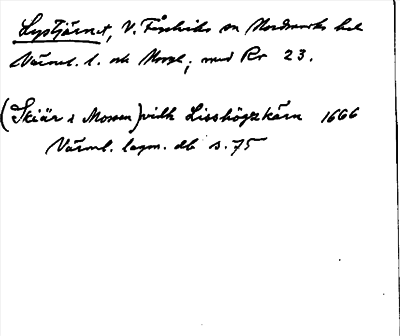 Lystjärnet, V. Fågelviks sn Nordmarks hd
Värml. l. och Norge, med Rr 23.
(Skiär i Mossen) vidh Lisshögzkärn 1666
Värml. lagm. db s. 75